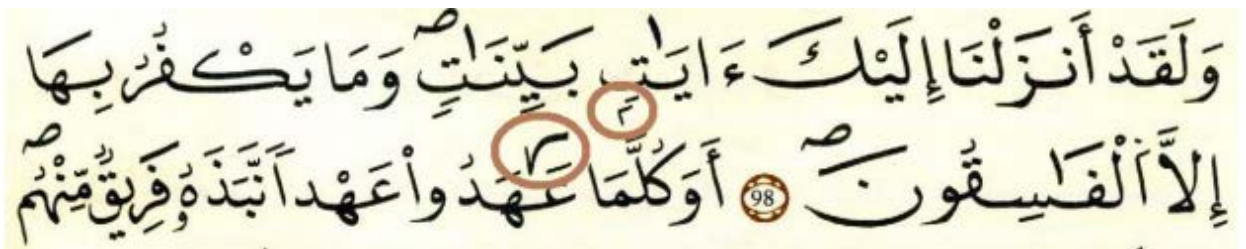 وَلَقَدْ أَنزَلْنَا إِلَيْكَ ءَايَٰتِۢ بَيِّنَٰتٍۖ وَمَا يَكْفُرُ بِهَا
إِلَّا اَ۬لْفَٰسِقُونَۖ 98 أَوَكُلَّمَا عَٰهَدُواْ عَهْداٗ نَّبَذَهُۥ فَرِيقٞ مِّنْهُمۖ